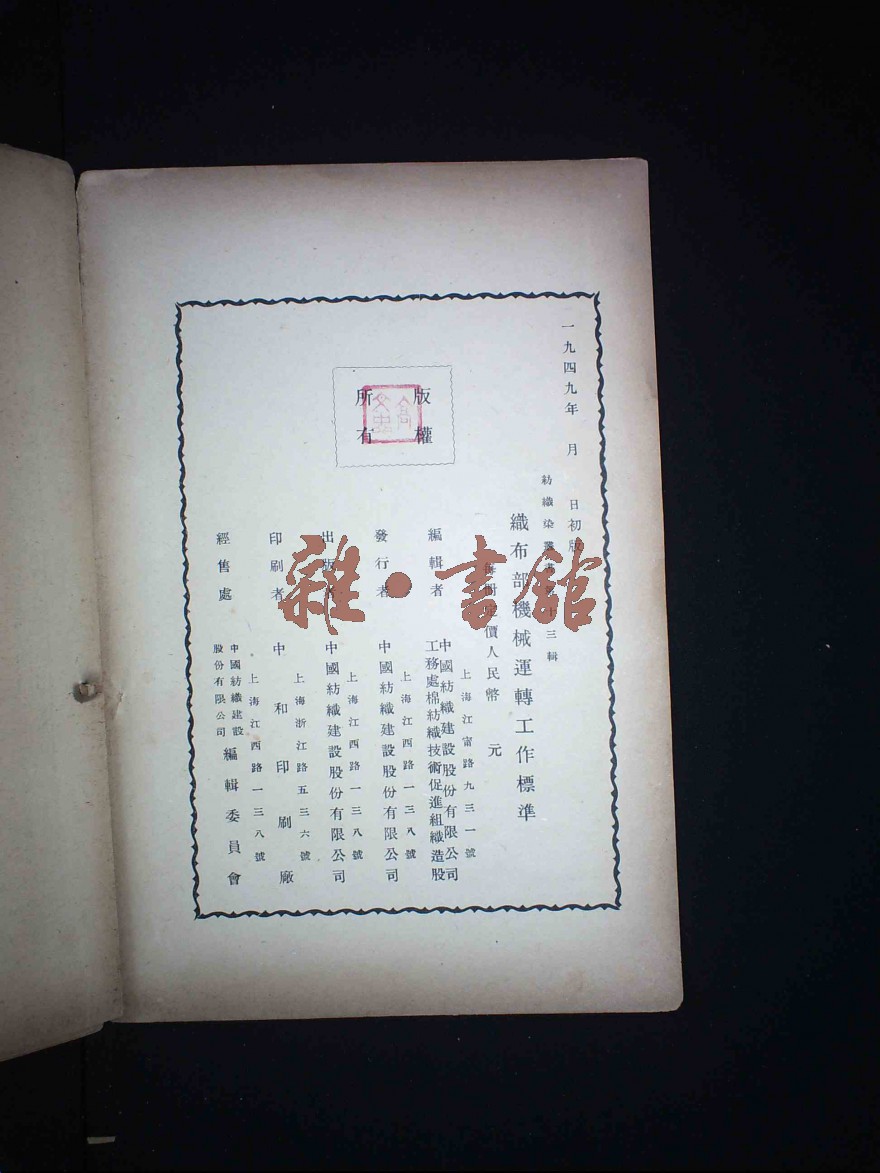 一九四九年 月 日初版
紡織染叢書 十三輯
織布部機械運轉工作標準
每冊定價人民幣 元
版權
所有
編輯者
中國紡織建設股份有限公司
工務處棉紡織技術促進組織造股
上海江甯路九三一號
發行者
中國紡織建設股份有限公司
上海江西路一三八號
出版者
中國紡織建設股份有限公司
上海江西路一三八號
印刷者
中和印刷廠
上海浙江路五三六號
經售處
中國紡織建設
股份有限公司
編輯委員會
上海江西路一三八號
雜·書館